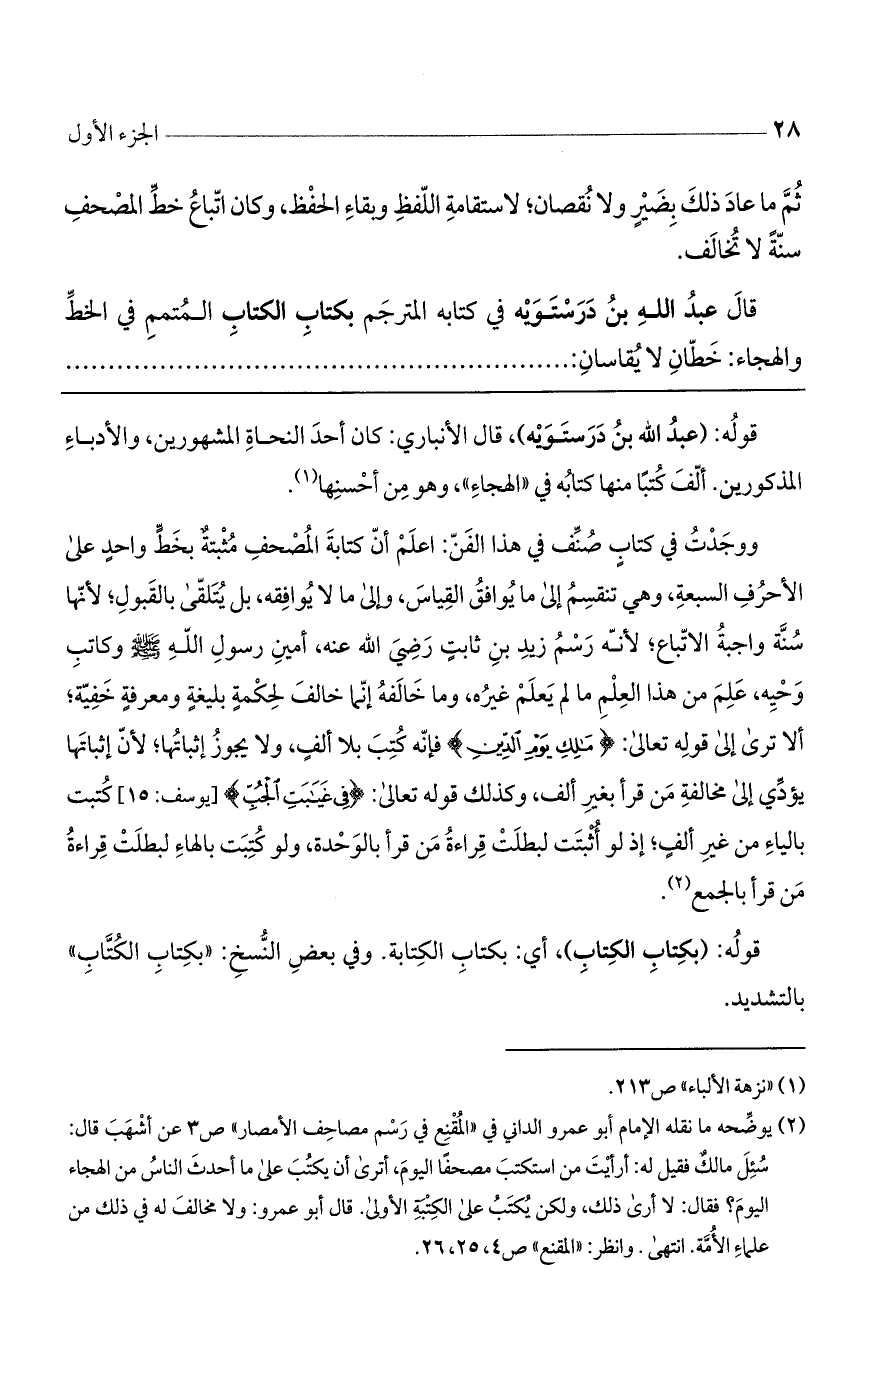 ٢٨ الجزء الأول
ثُمَّ ما عادَ ذلكَ بِضَيْرٍ ولا نُقصان؛ لاستقامةِ اللّفظِ وبقاءِ الحفْظ، وكان اتّباعُ خطِّ المصْحفِ
سنّةً لا تُخالَف.
قالَ عبدُ اللـهِ بنُ دَرَسْتَـوَيْه في كتابه المترجَم بكتابِ الكتابِ الـمُتممِ في الخطِّ
والهجاء: خَطّانِ لا يُقاسانِ:............................................................
قولُه: (عبدُ الله بنُ دَرَستَـوَيْه)، قال الأنباري: كان أحدَ النحـاةِ المشهورين، والأدبـاءِ
المذكورين. ألّفَ كُتبًا منها كتابُه في «الهجاءِ»، وهو مِن أحْسنِها(١).
ووجَدْتُ في كتابٍ صُنِّف في هذا الفَنّ: اعلَمْ أنّ كتابةَ المُصْحفِ مُثْبتةٌ بخَطٍّ واحدٍ علىٰ
الأحرُفِ السبعةِ، وهي تنقسِمُ إلىٰ ما يُوافقُ القِياسَ، وإلىٰ ما لا يُوافِقه، بل يُتَلقّىٰ بالقَبولِ؛ لأنّها
سُنَّة واجبةُ الاتّباع؛ لأنـه رَسْمُ زيدِ بنِ ثابتٍ رَضِيَ الله عنه، أمينِ رسولِ اللّـهِ ﷺ وكاتبِ
وَحْيِه، عَلِمَ من هذا العِلْمِ ما لم يَعلَمْ غيرُه، وما خَالَفهُ إنّما خالفَ لِحكْمةٍ بليغةٍ ومعرفةٍ خَفِيّة؛
ألا ترىٰ إلىٰ قولِه تعالىٰ: ﴿ مَٰلِكِ يَوْمِ ٱلدِّينِ ﴾ فإنّه كُتِبَ بلا ألفٍ، ولا يجوزُ إثباتُها؛ لأنّ إثباتَها
يؤدِّي إلىٰ مخالفةِ مَن قرأ بغيرِ ألف، وكذلك قوله تعالىٰ: ﴿فِى غَيَٰبَتِ ٱلْجُبِّ﴾ [يوسف: ١٥] كُتبت
بالياءِ من غيرِ ألفٍ؛ إذ لو أُثْبتَت لبطلَتْ قِراءةُ مَن قرأ بالوَحْدة، ولو كُتِبَت بالهاءِ لبطلَتْ قِراءةُ
مَن قرأ بالجمع(٢).
قولُه: (بكِتابِ الكِتابِ)، أي: بكتابِ الكِتابة. وفي بعضِ النُّسخِ: «بكِتابِ الكُتَّابِ»
بالتشديد.
(١) «نزهة الألباء» ص٢١٣.
(٢) يوضِّحه ما نقله الإمام أبو عمرو الداني في «المُقْنِع في رَسْم مصاحِف الأمصار» ص٣ عن أشْهَبَ قال:
سُئِلَ مالكٌ فقيل له: أرأيْتَ من استكتبَ مصحفًا اليومَ، أترىٰ أن يكتُبَ علىٰ ما أحدثَ الناسُ من الهجاء
اليومَ؟ فقال: لا أرىٰ ذلك، ولكن يُكتَبُ علىٰ الكِتْبَةِ الأولىٰ. قال أبو عمرو: ولا مخالفَ له في ذلك من
علماءِ الأُمَّة. انتهىٰ . وانظر: «المقنع» ص٤، ٢٥، ٢٦.